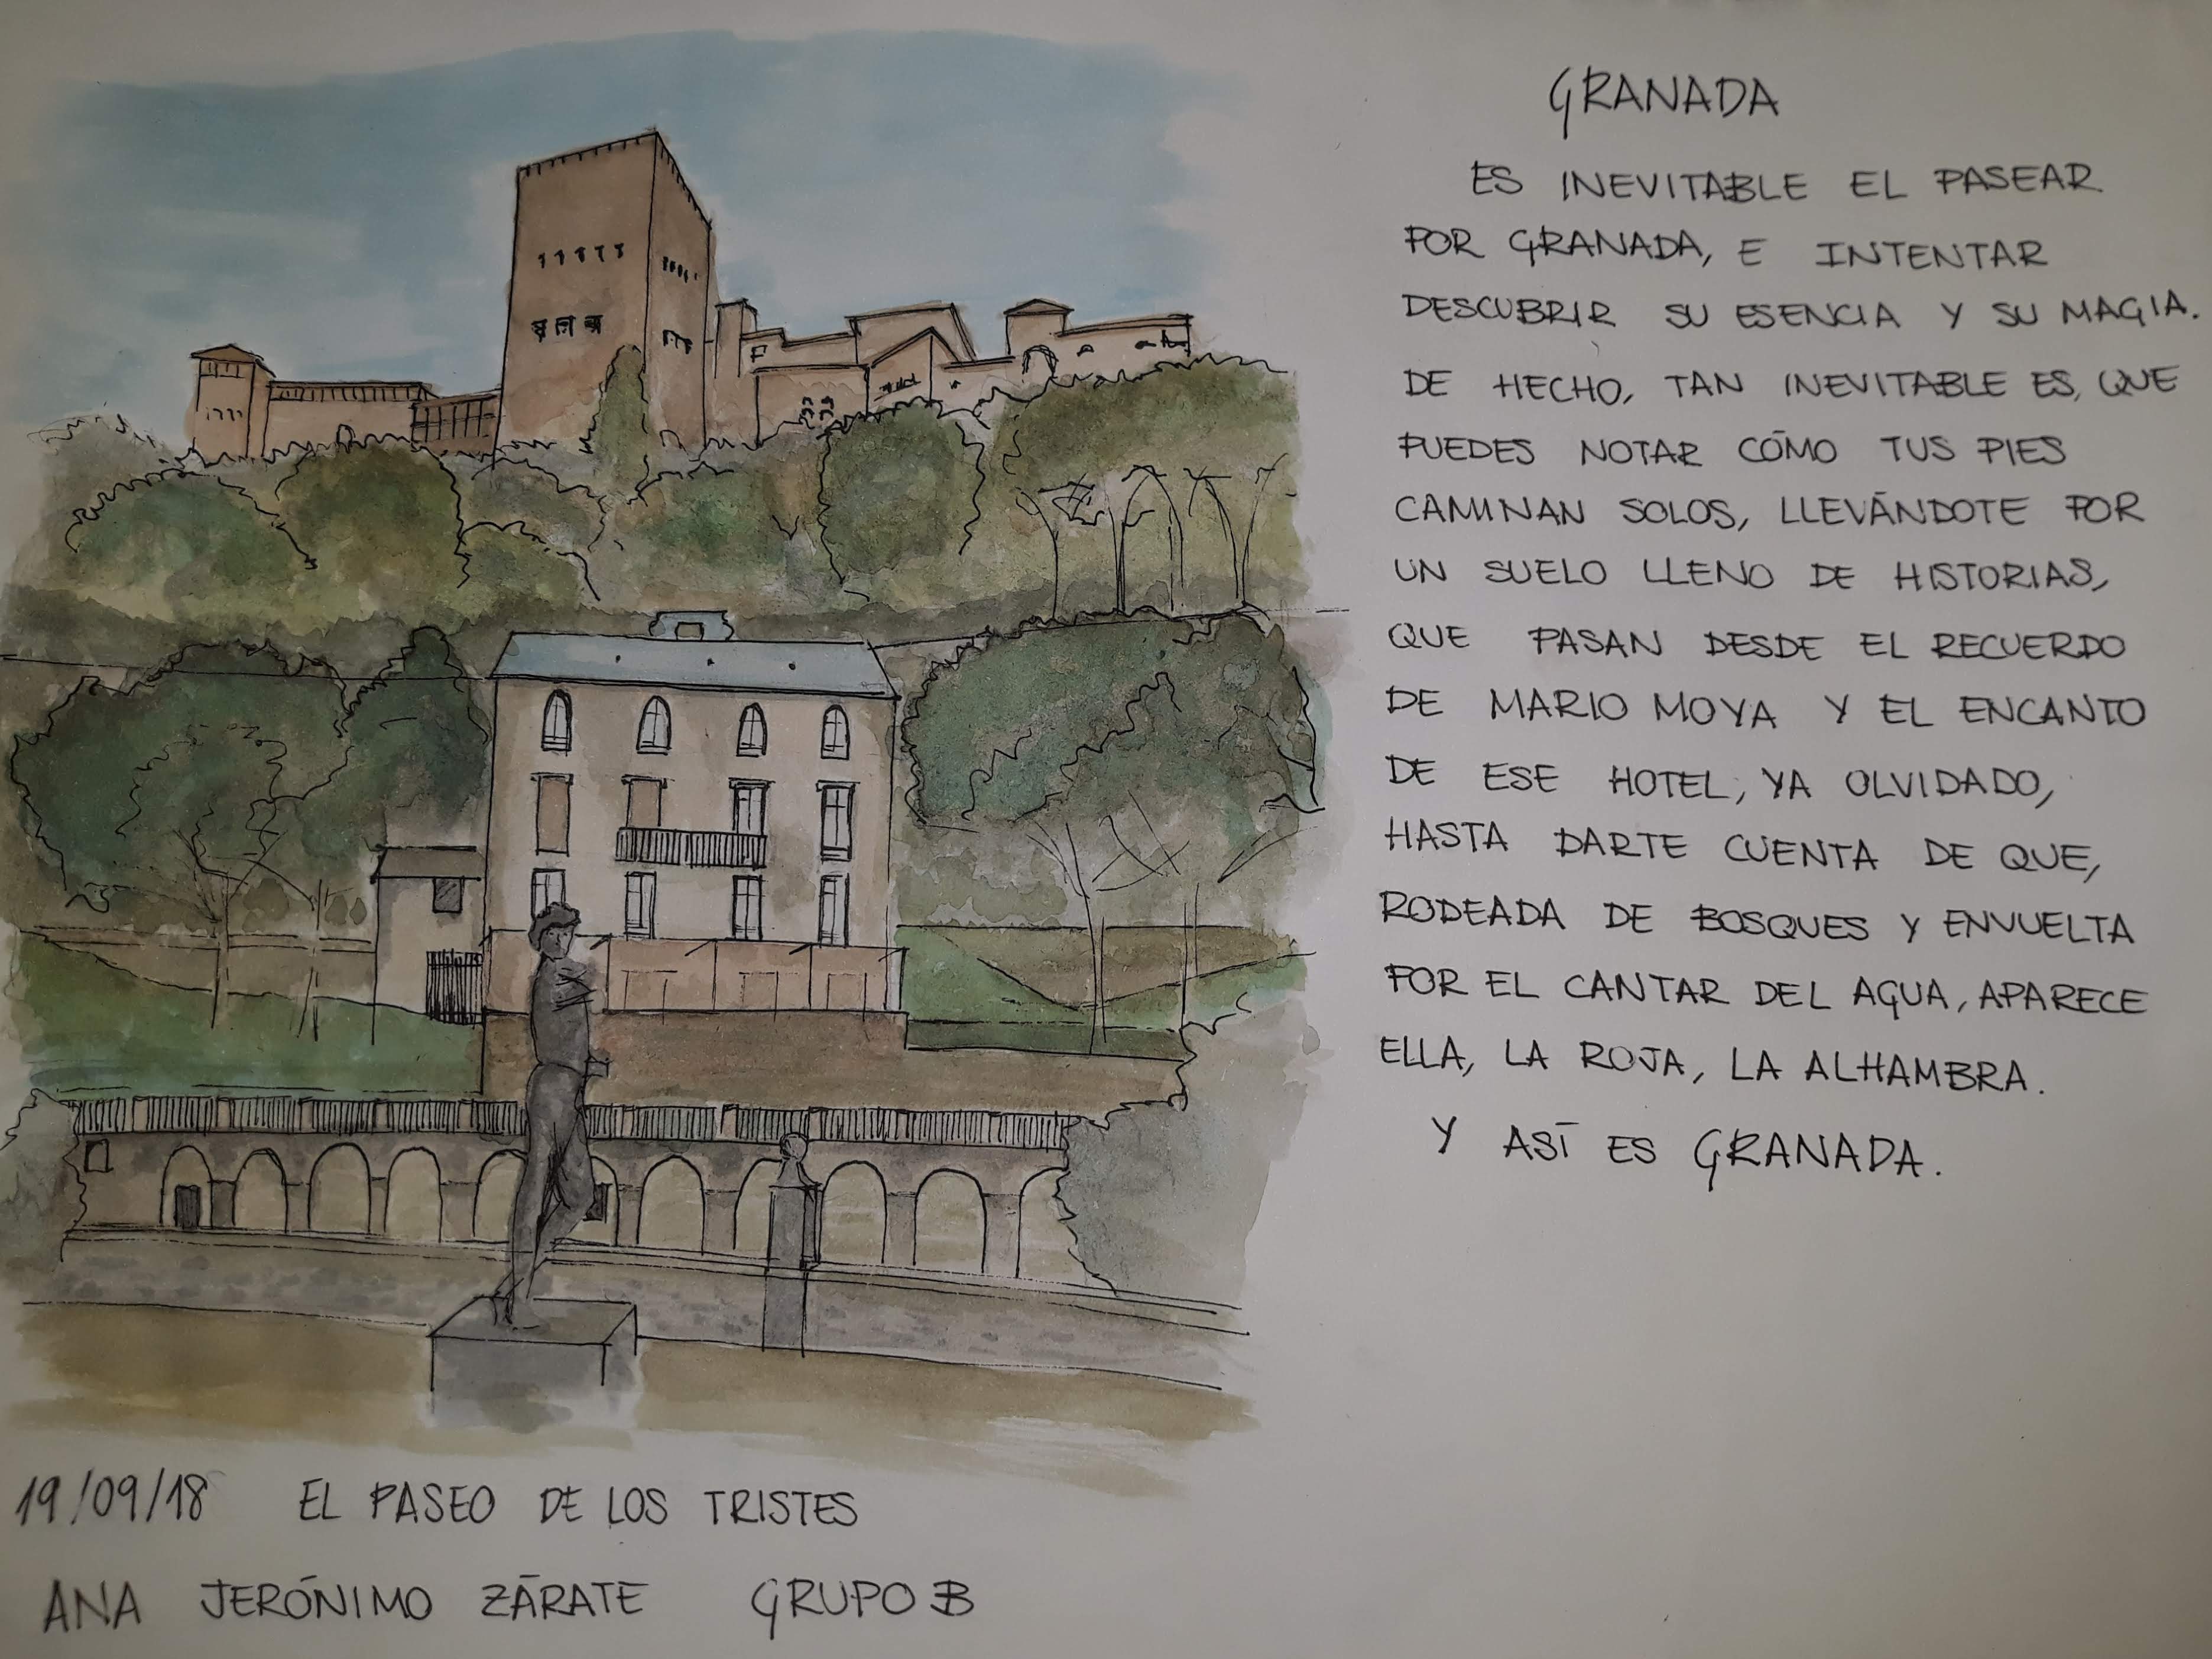 GRANADA
ES INEVITABLE EL PASEAR
POR GRANADA, E INTENTAR
DESCUBRIR SU ESENCIA Y SU MAGIA.
DE HECHO, TAN INEVITABLE ES, QUE
PUEDES NOTAR CÓMO TUS PIES
CAMINAN SOLOS, LLEVÁNDOTE POR
UN SUELO LLENO DE HISTORIAS,
QUE PASAN DESDE EL RECUERDO
DE MARIO MOYA Y EL ENCANTO
DE ESE HOTEL, YA OLVIDADO,
HASTA DARTE CUENTA DE QUE,
RODEADA DE BOSQUES Y ENVUELTA
POR EL CANTAR DEL AGUA, APARECE
ELLA, LA ROJA, LA ALHAMBRA.
Y ASÍ ES GRANADA.
19/09/18 EL PASEO DE LOS TRISTES
ANA JERÓNIMO ZÁRATE GRUPO B